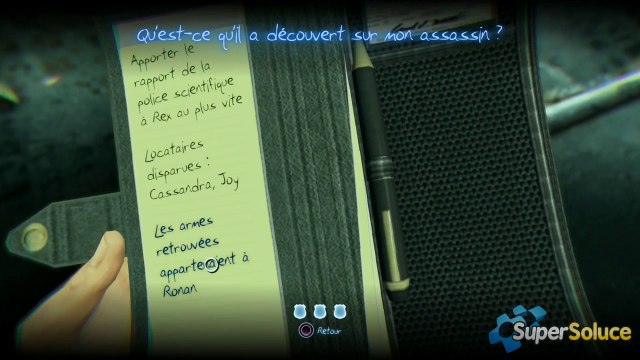 Qu'est-ce qu'il a découvert sur mon assassin ?
Apporter le
rapport de la
police scientifique
à Rex au plus vite
Locataires
disparues :
Cassandra, Joy
Les armes
retrouvées
appartenaient à
Ronan
Retour
SuperSoluce